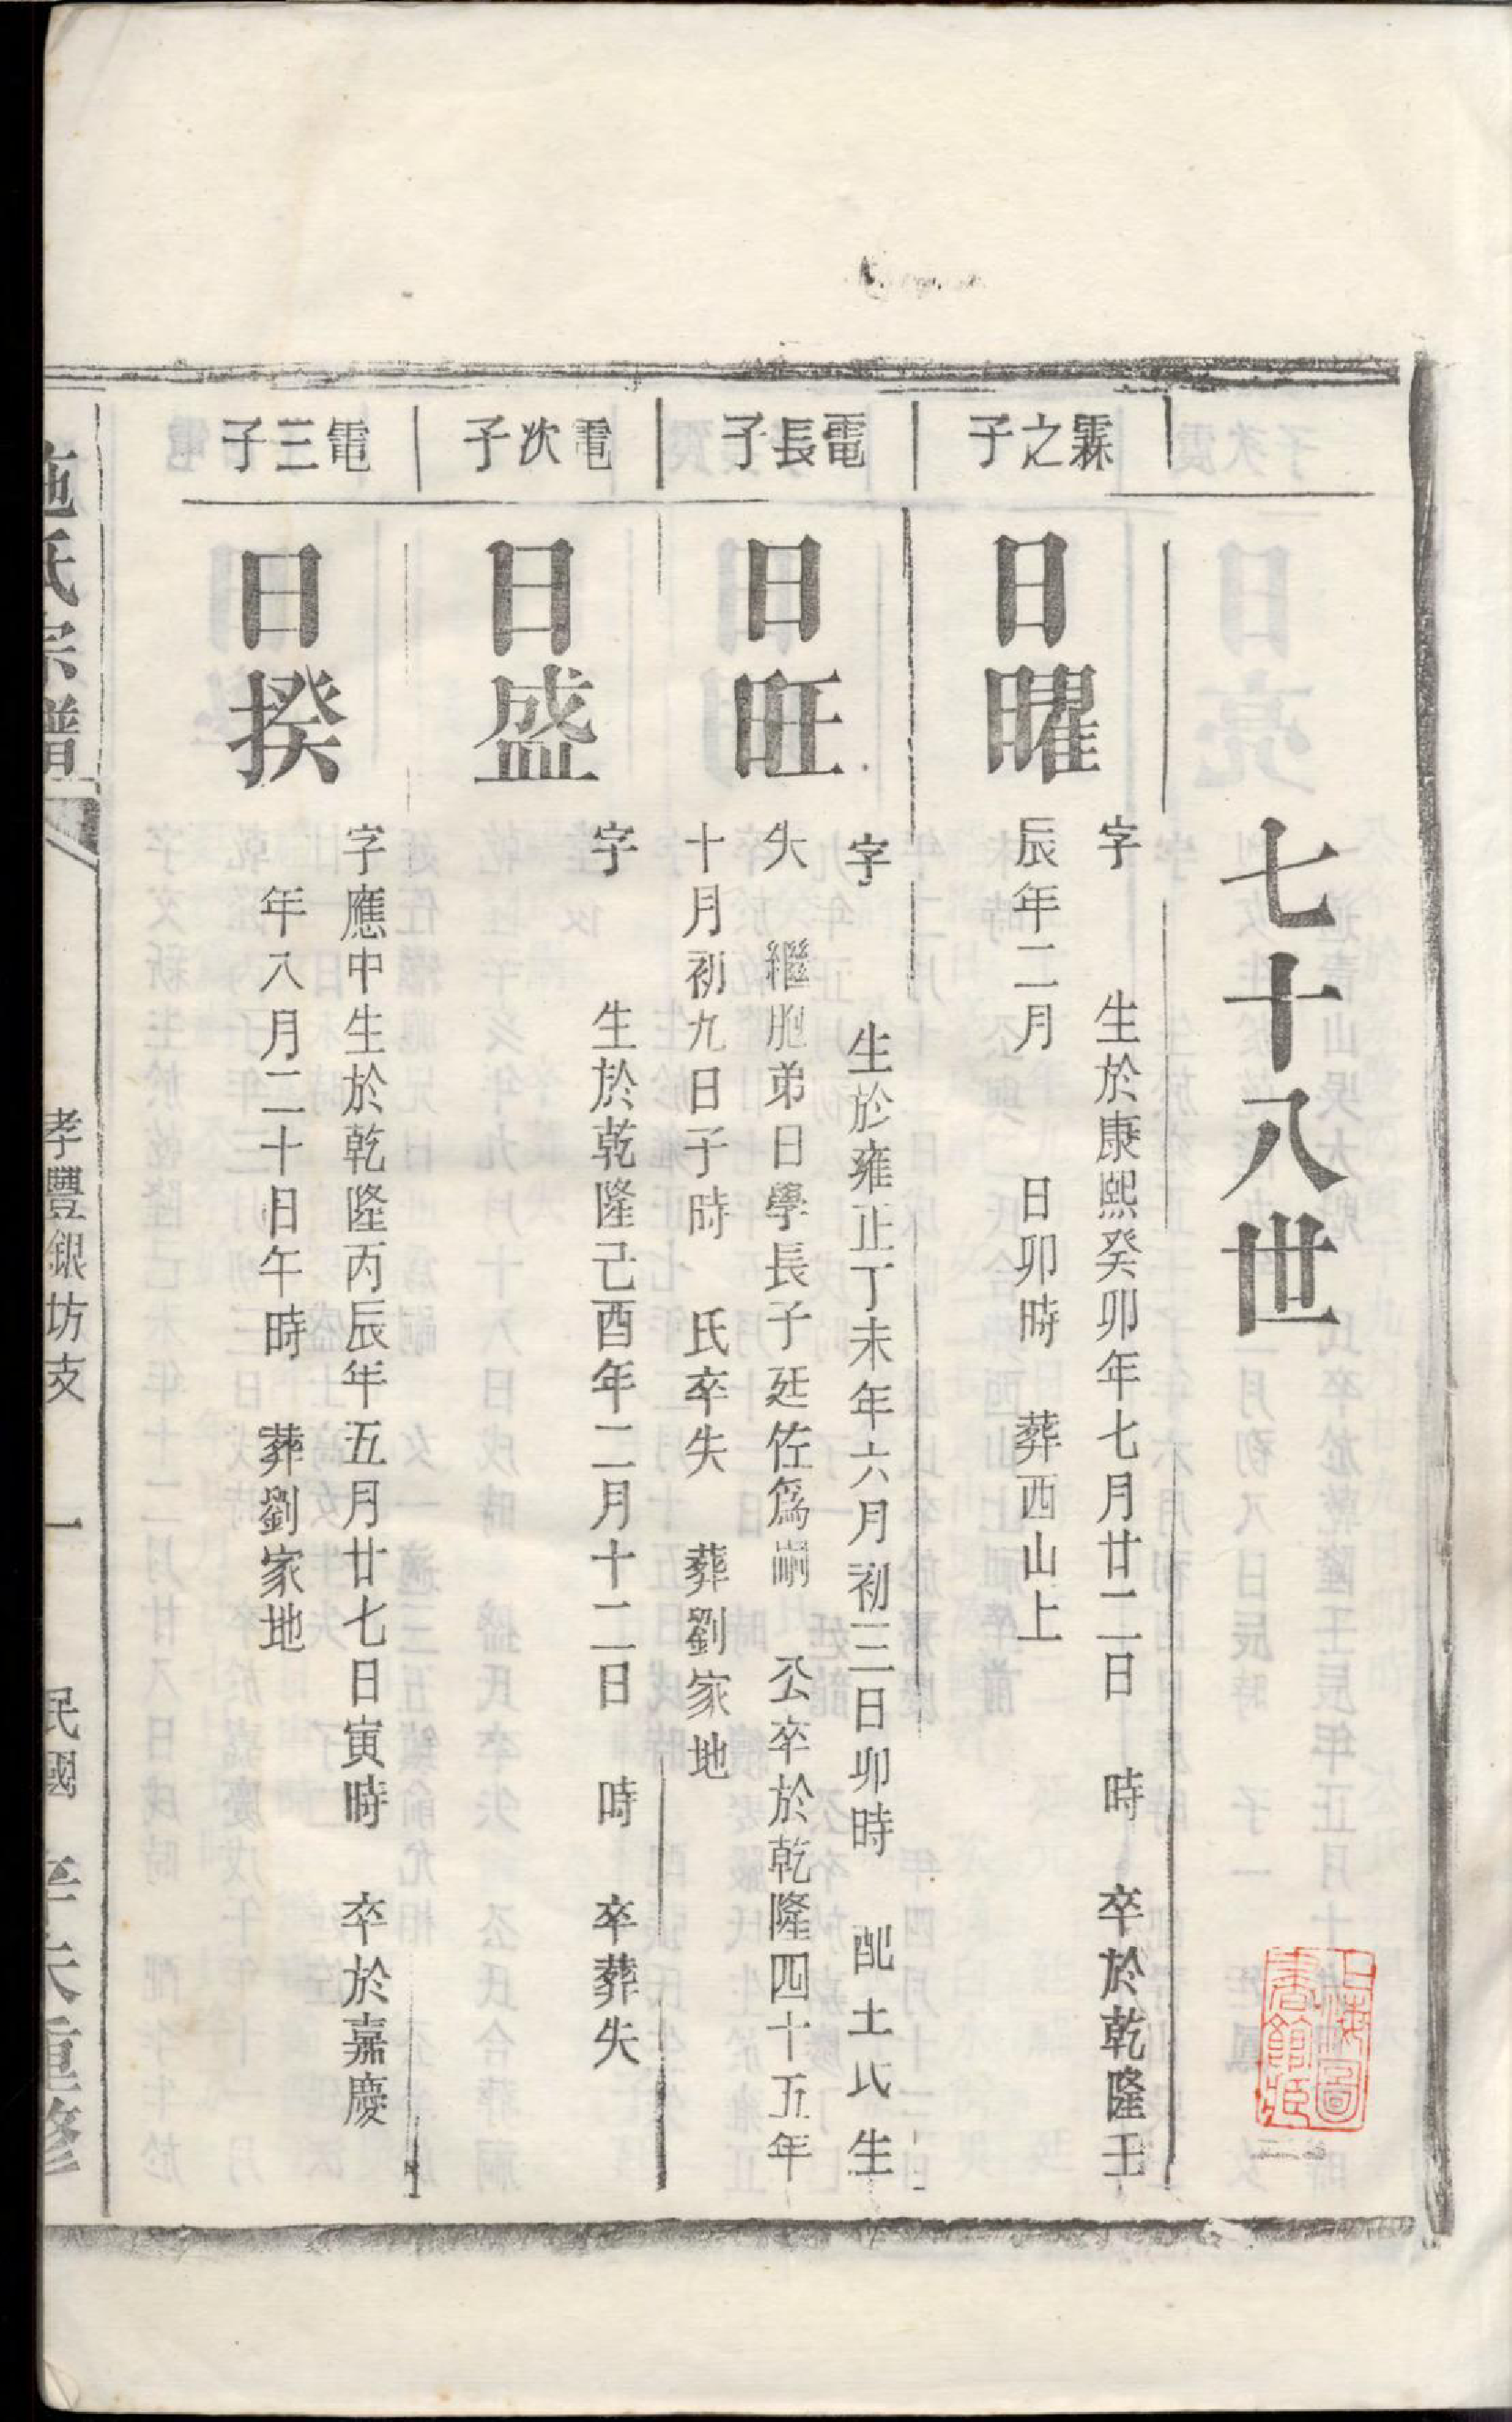 七十八世
上海圖
書館藏
霖之子
日曜
字 生於康熙癸卯年七月廿二日 時 卒於乾隆壬
辰年二月 日卯時 葬西山上
電長子
日旺
字 生於雍正丁未年六月初三日卯時 配土氏生
失 繼胞弟日學長子廷佐爲嗣 公卒於乾隆四十五年
十月初九日子時 氏卒失 葬劉家地
電次子
日盛
字 生於乾隆己酉年二月十二日 時 卒葬失
電三子
日揆
字應中生於乾隆丙辰年五月廿七日寅時 卒於嘉慶
年八月二十日午時 葬劉家地
施氏宗譜 孝豐銀坊支 一 民國 辛未重修